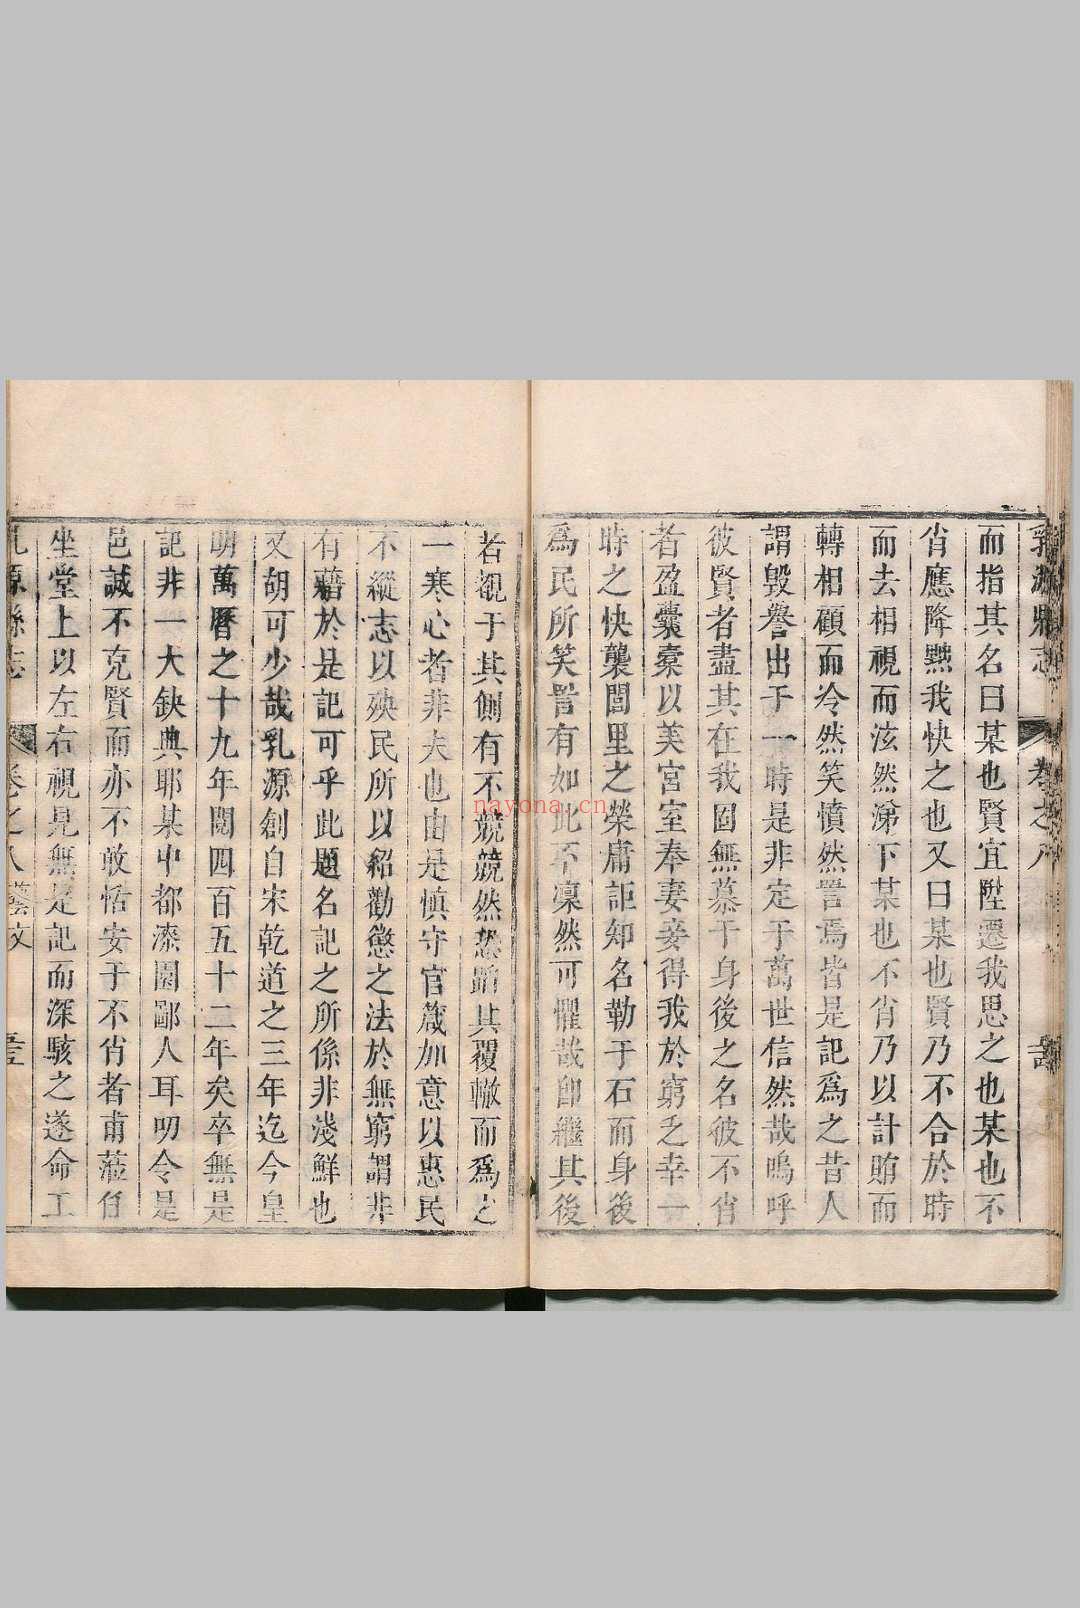 乳源縣志
卷之八
而指其名曰某也賢宜陞遷我思之也某也不
肖應降黜我快之也又曰某也賢乃不合於時
而去相視而泫然涕下某也不肖乃以計賄而
轉相顧而冷然笑憤然詈焉皆是記為之昔人
謂毀譽出于一時是非定于萬世信然哉嗚呼
彼賢者盡其在我固無慕于身後之名彼不肖
者盈囊橐以美宮室奉妻妾得我於窮乏幸一
時之快襲閭里之榮庸詎知名勒于石而身後
為民所笑詈有如此不凜然可懼哉即繼其後
者覩于其側有不競競然恐蹈其覆轍而為之
一寒心者非夫也由是慎守官箴加意以惠民
不縱志以殃民所以紹勸懲之法於無窮謂非
有藉於是記可乎此題名記之所係非淺鮮也
又胡可少哉乳源創自宋乾道之三年迄今皇
明萬曆之十九年閱四百五十二年矣卒無是
記非一大缺典耶某中都濠園鄙人耳叨令是
邑誠不克賢而亦不敢恬安于不肖者甫蒞任
坐堂上以左右視見無是記而深駭之遂命工
乳源縣志
卷之八藝文
nayona.cn